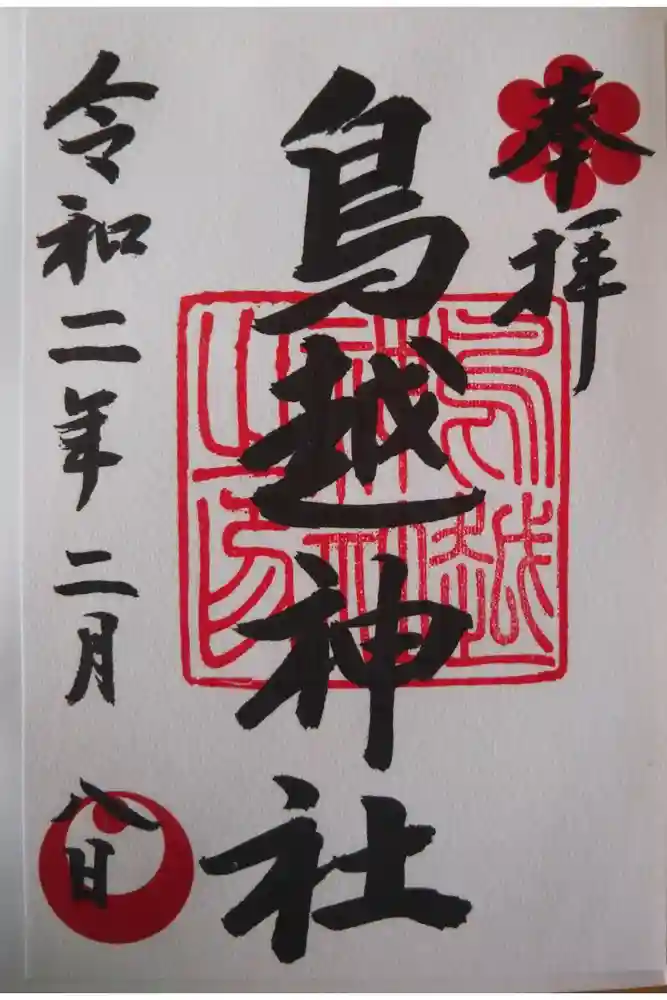 奉拝
鳥越神社
鳥越
神社
之印
令和二年二月八日